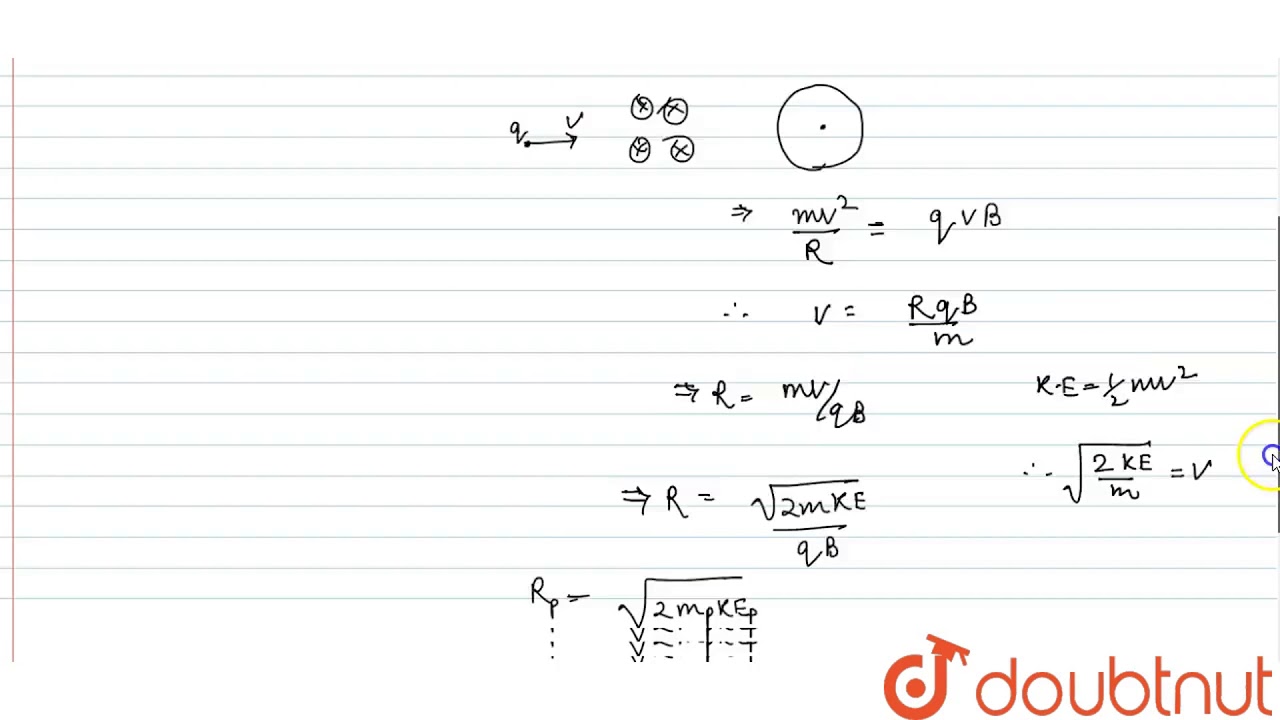 q v ⊗ ⊗
⊗ ⊗
⇒ mv²/R = qvB
∴ v = RqB/m
⇒ R = mv/qB
K.E = 1/2 mv²
∴ √(2KE/m) = v
⇒ R = √(2mKE)/qB
Rp = √(2mpKEp)
doubtnut